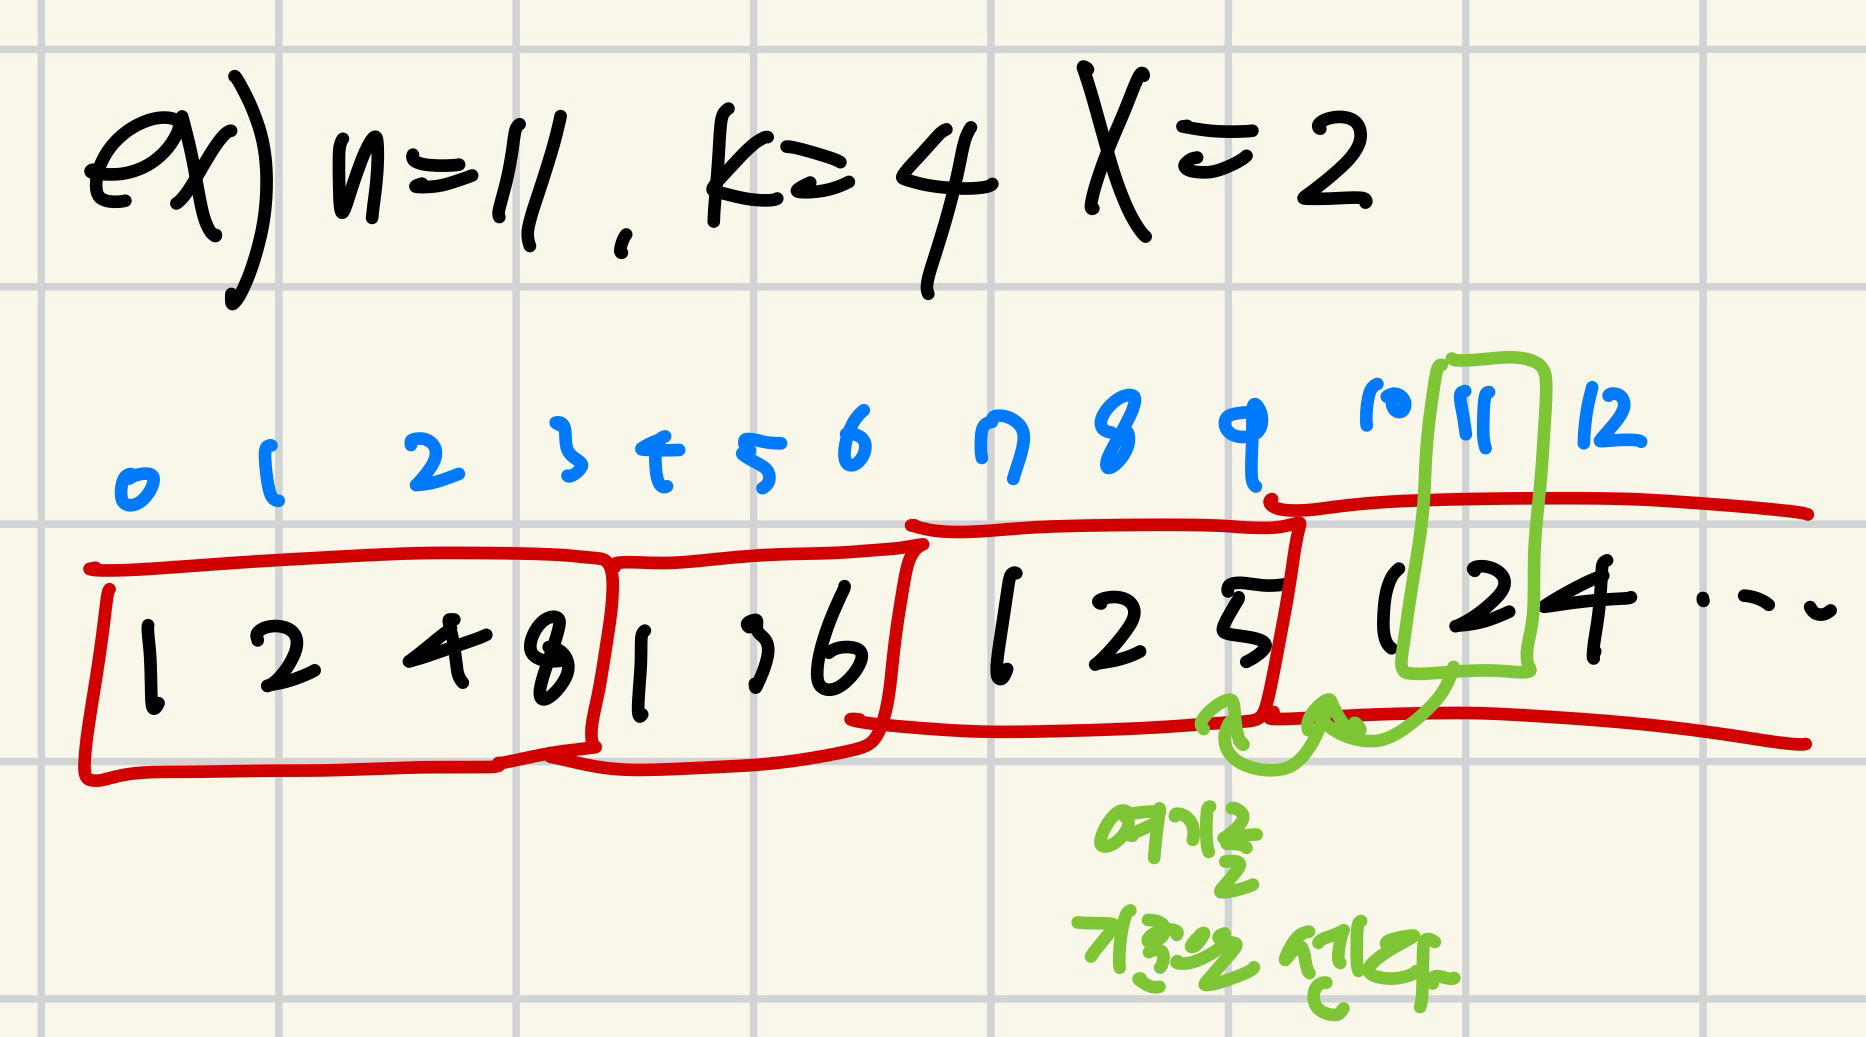 ex) n=11, k=4 X=2
0 1 2 3 4 5 6 7 8 9 10 11 12
1 2 4 8 1 3 6 1 2 5 1 2 4 ...
여기를
기준으로 센다